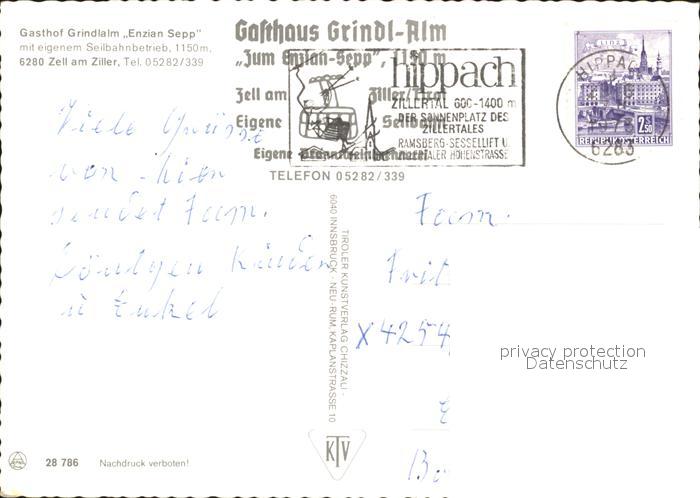 Gasthof Grindlalm „Enzian Sepp"
mit eigenem Seilbahnbetrieb, 1150m,
6280 Zell am Ziller, Tel. 05282/339
Gasthaus Grindl-Alm
„Zum Enzian-Sepp", 1150 m
Zell am Ziller/Tirol
Eigene Seilbahn
Eigene Branntweinbrennerei
TELEFON 05282/339
hippach
ZILLERTAL 600-1400 m
DER SONNENPLATZ DES
ZILLERTALES
RAMSBERG-SESSELLIFT U.
ZILLERTALER HÖHENSTRASSE
LINZ
2.50
REPUBLIK ÖSTERREICH
HIPPACH
6283
Viele Grüsse
von hier
sendet Fam.
Röntgen Kinder
u Enkel
Fam.
Frit
X4254
Bo
TIROLER KUNSTVERLAG CHIZZALI -
6040 INNSBRUCK - NEU-RUM, KAPLANSTRASSE 10
KTV
privacy protection
Datenschutz
28 786 Nachdruck verboten!